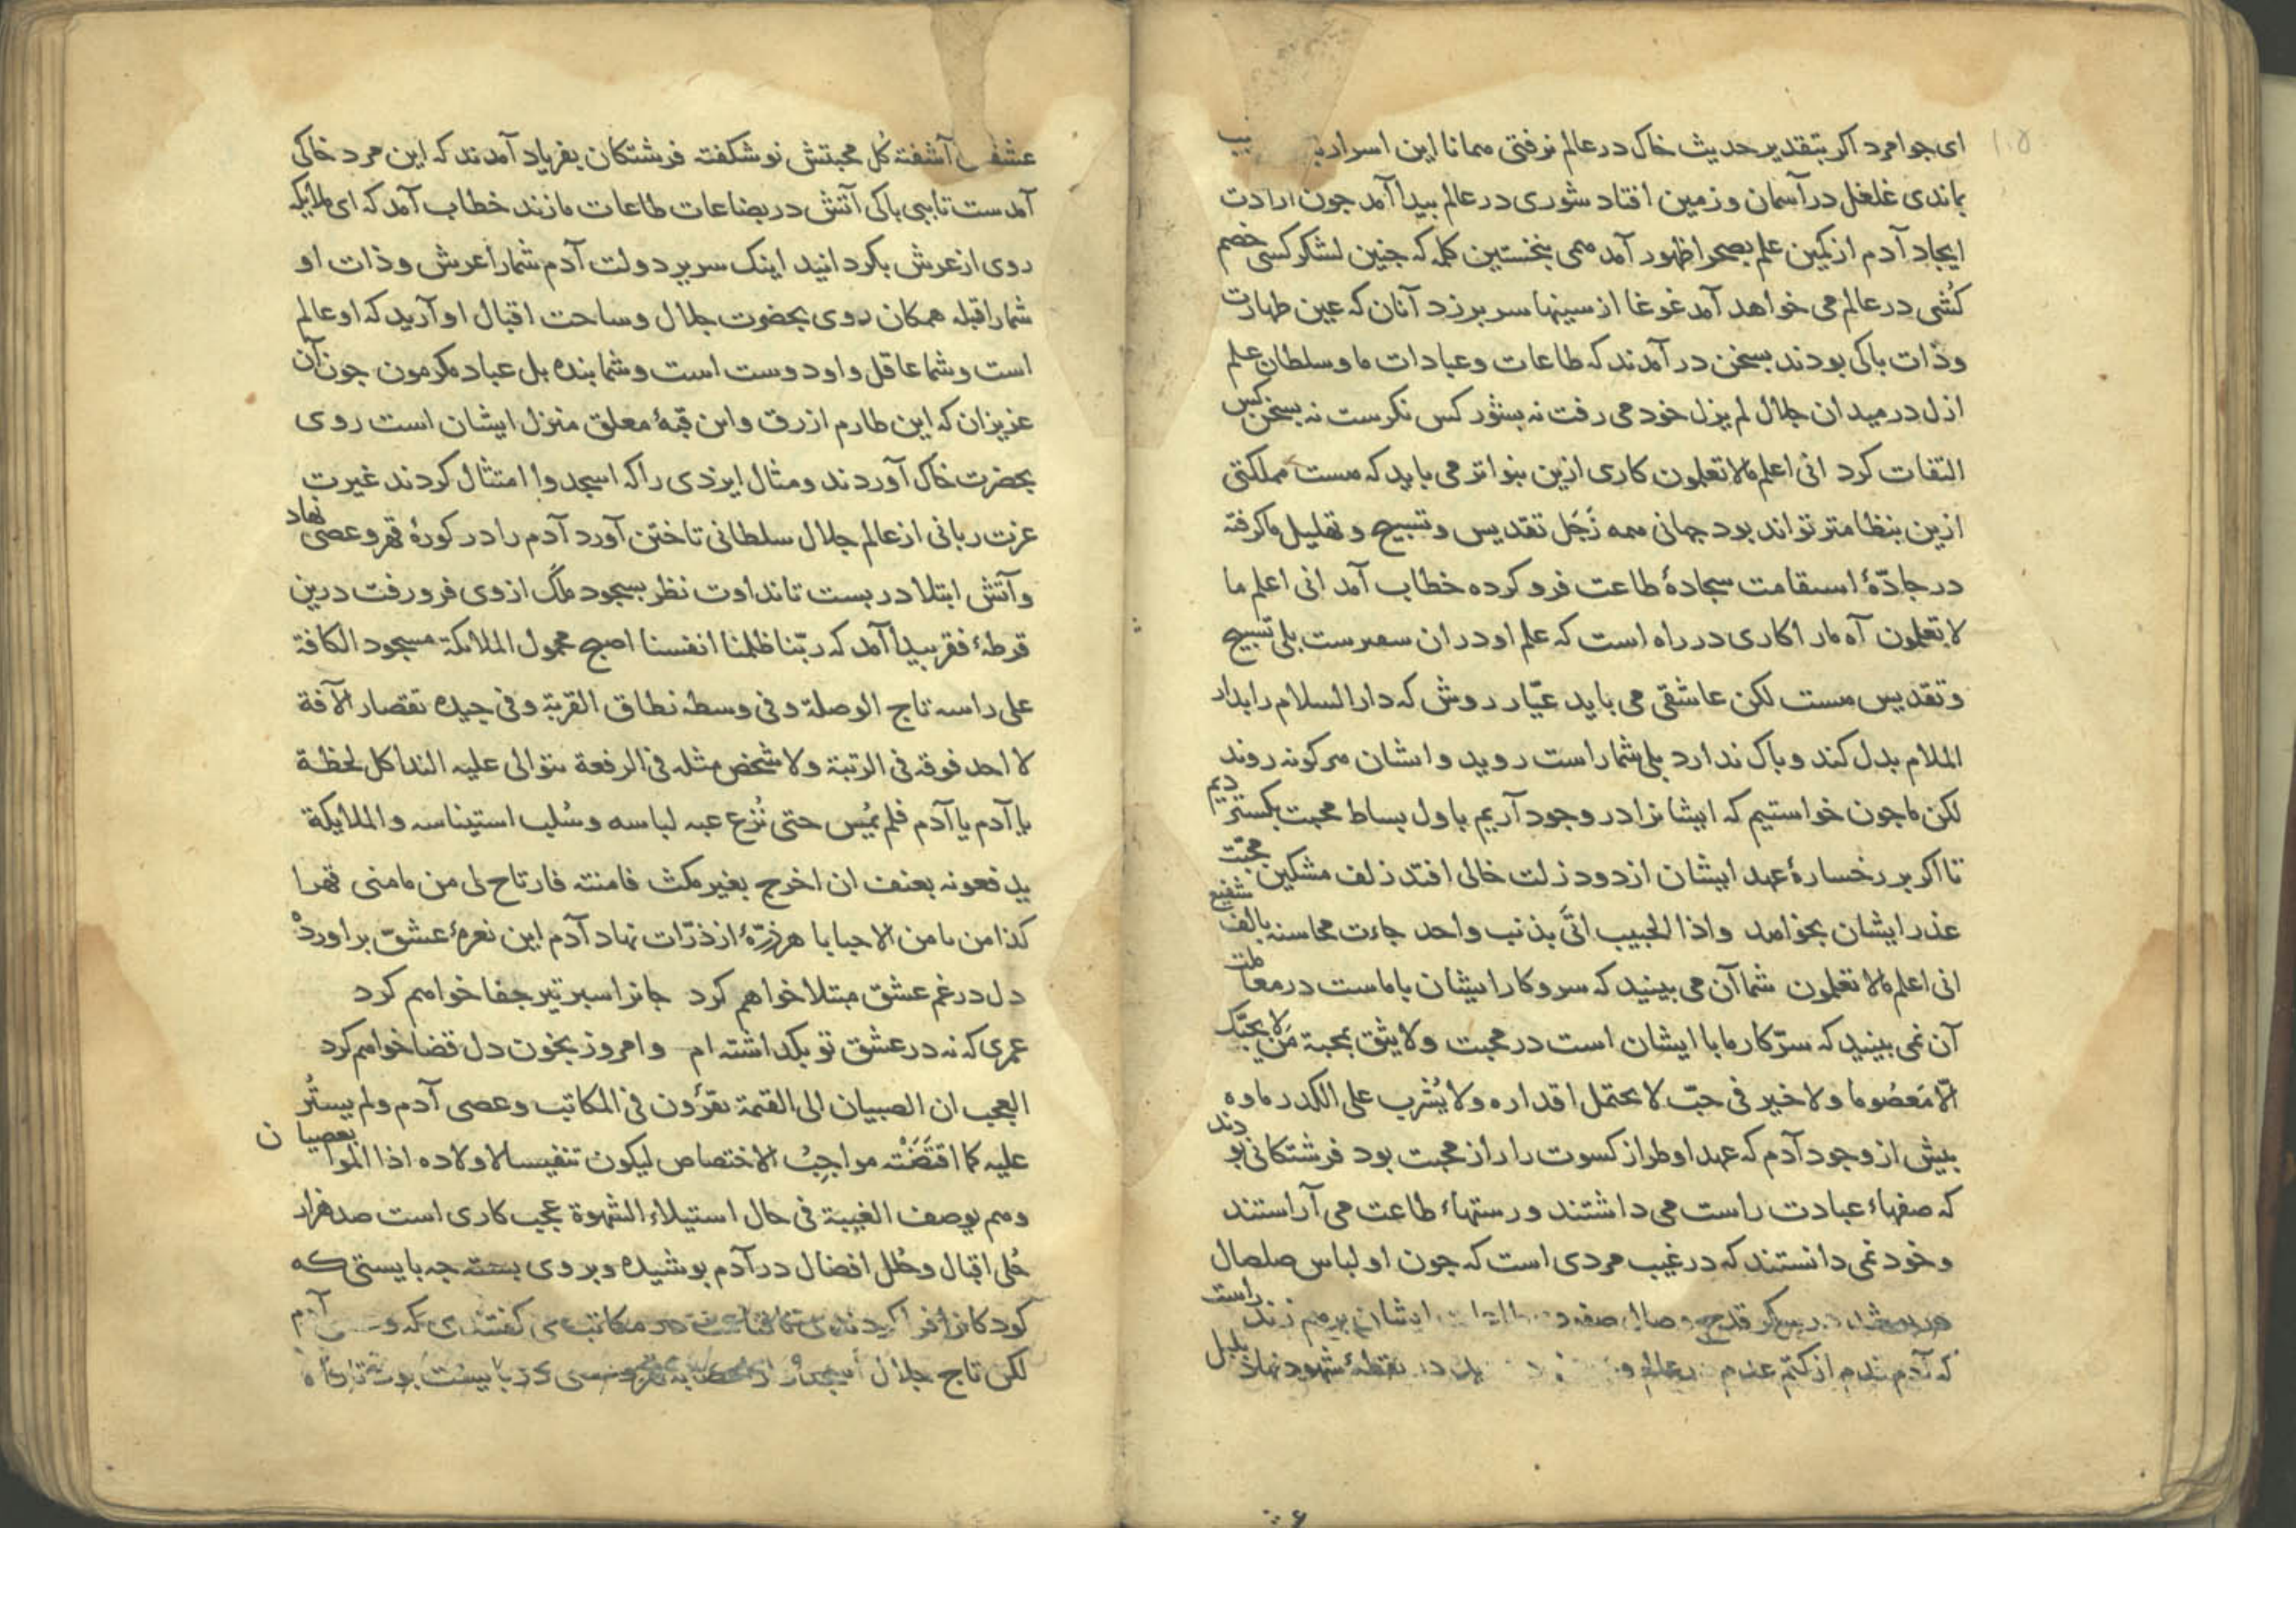 ای جوامرد اکر بتقدیر حدیث خاک در عالم نرفتی همانا این اسرار
بماندی غلغل در آسمان و زمین افتاد شوری در عالم بیدا آمد جون ارادت
ایجاد آدم از کمین علم بصحرا ظهور آمد همی بنخستین کله که جنین لشکر کسی خصم
کُشی در عالم می خواهد آمد غوغا از سینها سر برزد آنان که عین طهارت
وذات باکی بودند بسخن در آمدند که طاعات وعبادات ما وسلطان علم
ازل در میدان جلال لم یزل خود می رفت نه بشور کس نکرست نه بسخن کس
التفات کرد انی اعلم مالا تعلمون کاری ازین بنواتر می باید که هست مملکتی
ازین بنظامتر تواند بود جهانی همه زَجَل تقدیس وتسبیح و تهلیل ماکرفته
در جادّهٔ استقامت سجادهٔ طاعت فرو کرده خطاب آمد انی اعلم ما
لا تعلمون آه مارا کاری در راه است که علم او در ان سمرست بلی تسبیح
وتقدیس هست لکن عاشقی می باید عیّار روش که دار السلام را بدار
الملام بدل کند و باک ندارد بلی شما راست روید وایشان هرکونه روند
لکن ما جون خواستیم که ایشانرا در وجود آریم باول بساط محبت بکستر دیم
تا اکر بر رخسارهٔ عهد ایشان از دود زلت خالی افتد زلف مشکین محبّت
عذر ایشان بخواهد واذا الحبیب اتَی بذنب واحد جاءت محاسنه بالف شفیع
انی اعلم مالا تعلمون شما آن می بینید که سرو کار ایشان باماست در معا ملت
آن نمی بینید که سرّ کار ما با ایشان است در محبت ولا یثق بمحبة مَن لا یحبّک
الّا مَعصُوما ولا خیر فی حبّ لا یحتمل اقداره ولا یُشرب علی الکدر ماوه
بیش از وجود آدم که عهد او طراز کسوت را راز محبت بود فرشتکانی بو دند
که صفهاء عبادت راست می داشتند ورستهاء طاعت می آراستند
وخود نمی دانستند که در غیب مردی است که جون او لباس صلصال
قدح وصال ایشان برهم زند راست
که آدم بندم از کتم عدم نقطهٔ شهود نهاذ بلبل
آشفته کل محبتش نو شکفته فرشتکان بفریاد آمدند که این مرد خاکی
آمدست تا ببی باکی آتش در بضاعات طاعات مازند خطاب آمد که ای ملایکه
روی از عرش بکردانید اینک سریر دولت آدم شمارا عرش وذات او
شمارا قبله همکان روی بحضرت جلال وساحت اقبال او آرید که او عالم
است وشما عاقل واو دوست است وشما بنده بل عباد مکرمون جون آن
عزیزان که این طارم ازرق واین قبّهٔ معلق منزل ایشان است روی
بحضرت خاک آوردند ومثال ایزدی را که اسجدوا امتثال کردند غیرت
عزت ربانی از عالم جلال سلطانی تاختن آورد آدم را در کورهٔ قهر وعصی نهاد
وآتش ابتلا در بست تا نداوت نظر بسجود ملک از وی فرو رفت درین
قرطهٔ فقر بیدا آمد که ربّنا ظلمنا انفسنا اصبح محمول الملائکة مسجود الکافة
علی راسه تاج الوصلة وفی وسطه نطاق القربة وفی جیده تقصار الآفة
لا احد فوقه فی الرتبة ولا شخص مثله فی الرفعة یتوالی علیه الندا کل لحظة
یا آدم یا آدم فلم یُمس حتی نُزع عنه لباسه وسُلب استیناسه والملایکة
یدفعونه بعنف ان اخرج بغیر مکث فامنته فارتاح لی من مامنی قهرا
کذا من یامن الاحبابا هر ذرّهٔ از ذرّات نهاد آدم این نعرهٔ عشق براورد
دل در غم عشق مبتلا خواهم کرد جانرا سبر تیر جفا خواهم کرد
عمری که نه در عشق تو بکداشته ام وامروز بخون دل قضا خواهم کرد
العجب ان الصبیان الی القیمة یقرؤن فی المکاتب وعصی آدم ولم یستُر
علیه کما اقتَضَتْه مواجبُ الاختصاص لیکون تنفیسا لاولاده اذا الموا بعصیان
وهم بوصف الغیبة فی حال استیلاء الشهوة عجب کاری است صد هزار
حُلی اقبال وحُلل افضال در آدم بوشیده وبروی بسته جه بایستی که
کودکانرا فرا کردند مکاتب می کفتندی که آدم
لکن تاج جلال